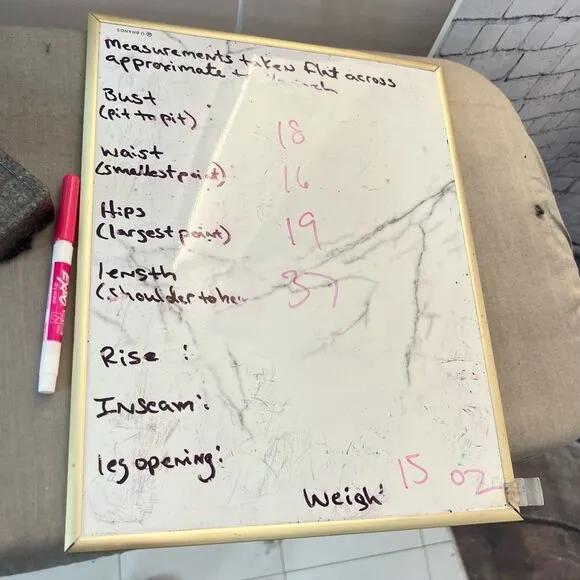 U BRANDS
measurements taken flat across
approximate
Bust :
(pit to pit)
18
waist
(smallest point)
16
Hips
(largest point)
19
length
(shoulder to hem
37
Rise :
Inseam:
leg opening:
Weigh: 15 oz
EXPO